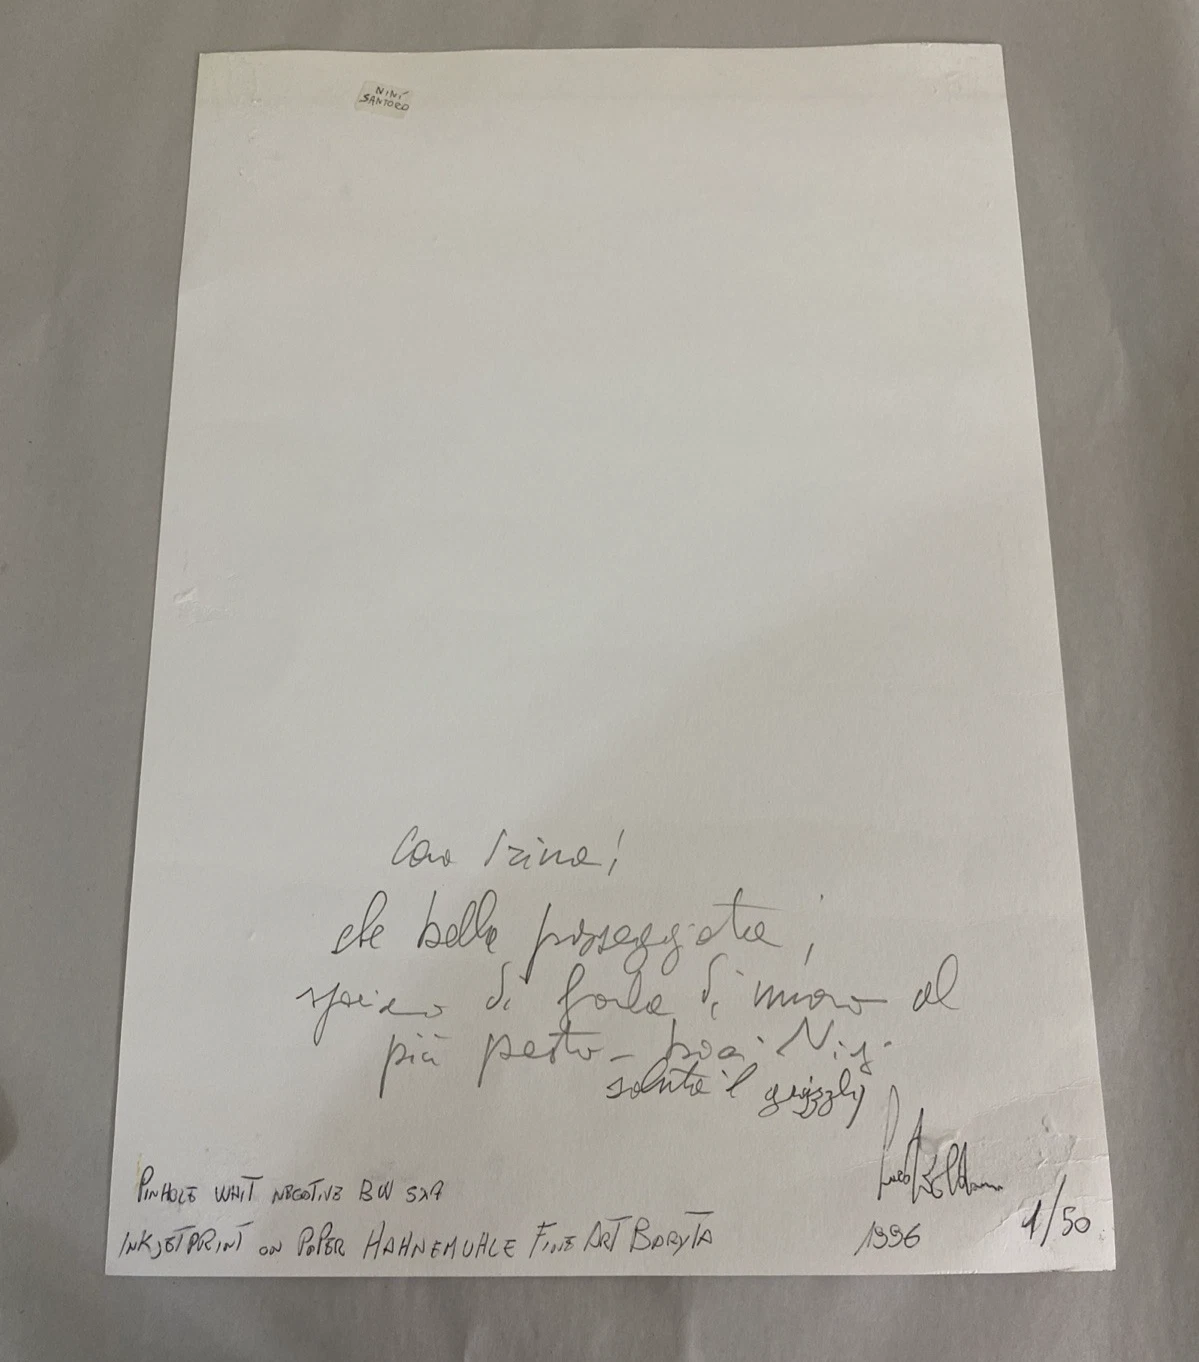 NINÍ
SANTORO
Cara Irina!
che bella passeggiata,
spero di farla di nuovo al
più presto - baci Nin.
saluta il grizzly
PINHOLE WHIT NEGATIVE BW 5X7
INKJETPRINT ON PAPER HAHNEMUHLE FINE ART BARYTA
1996
1/50